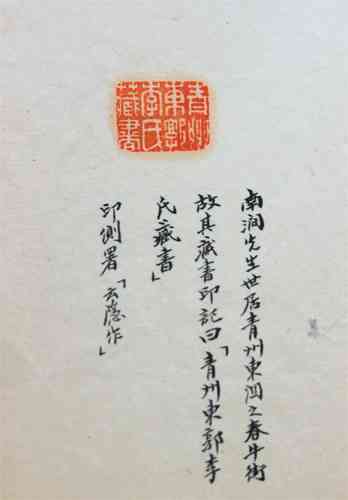 青州
東郭
李氏
藏書
南澗先生世居青州東関之春牛街
故其藏書印記曰「青州東郭李
氏藏書」
印側署「云隱作」